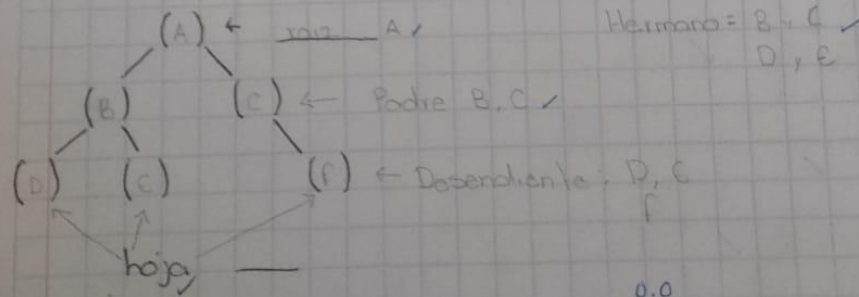 (A) ← raiz A ✓ Hermano = B, C ✓
D, E
(B) (C) ← Padre B, C ✓
(D) (E) (F) ← Desendiente: D, E
F
hoja
0.0